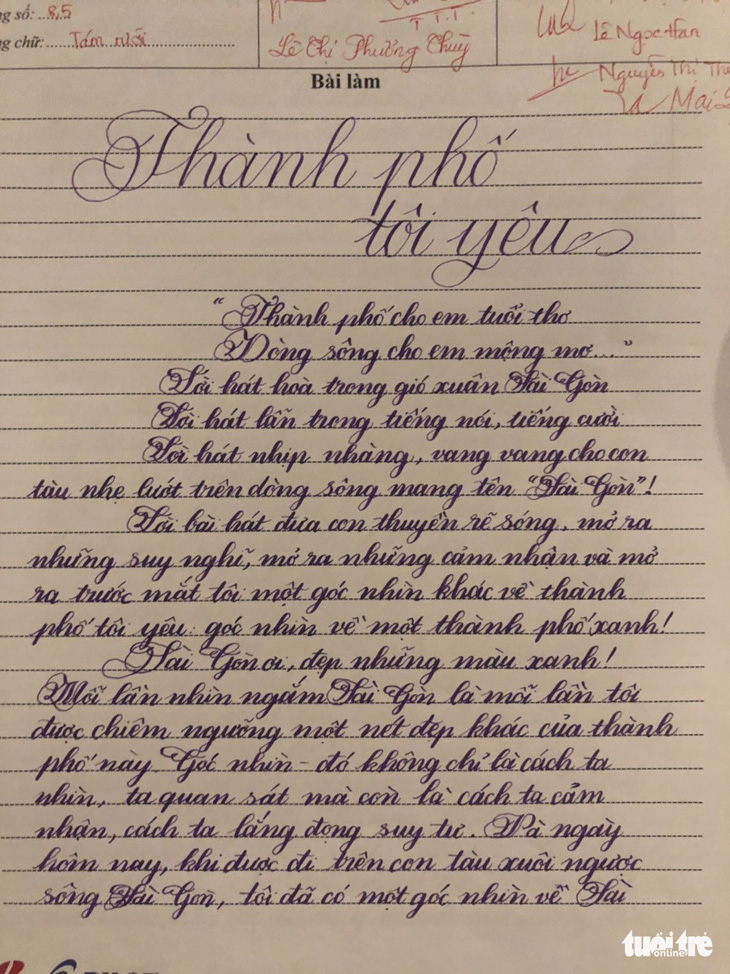 ng số: 8,5
ng chữ: Tám rưỡi
T.T.1
Lê Thị Phương Thuỳ
Lê Ngọc Hân
Nguyễn Thị Th
Mai
Bài làm
Thành phố
tôi yêu
"Thành phố cho em tuổi thơ
Dòng sông cho em mộng mơ..."
Lời hát hoà trong gió xuân Sài Gòn
Lời hát lẫn trong tiếng nói, tiếng cười
Lời hát nhịp nhàng, vang vang cho con
tàu nhẹ lướt trên dòng sông mang tên "Sài Gòn"!
Lời bài hát đưa con thuyền rẽ sóng, mở ra
những suy nghĩ, mở ra những cảm nhận và mở
ra trước mắt tôi một góc nhìn khác về thành
phố tôi yêu: góc nhìn về một thành phố xanh!
Sài Gòn ơi, đẹp những màu xanh!
Mỗi lần nhìn ngắm Sài Gòn là mỗi lần tôi
được chiêm ngưỡng một nét đẹp khác của thành
phố này. Góc nhìn - đó không chỉ là cách ta
nhìn, ta quan sát mà còn là cách ta cảm
nhận, cách ta lắng đọng suy tư. Và ngày
hôm nay, khi được đi trên con tàu xuôi ngược
sông Sài Gòn, tôi đã có một góc nhìn về Sài
tuổi trẻ
online